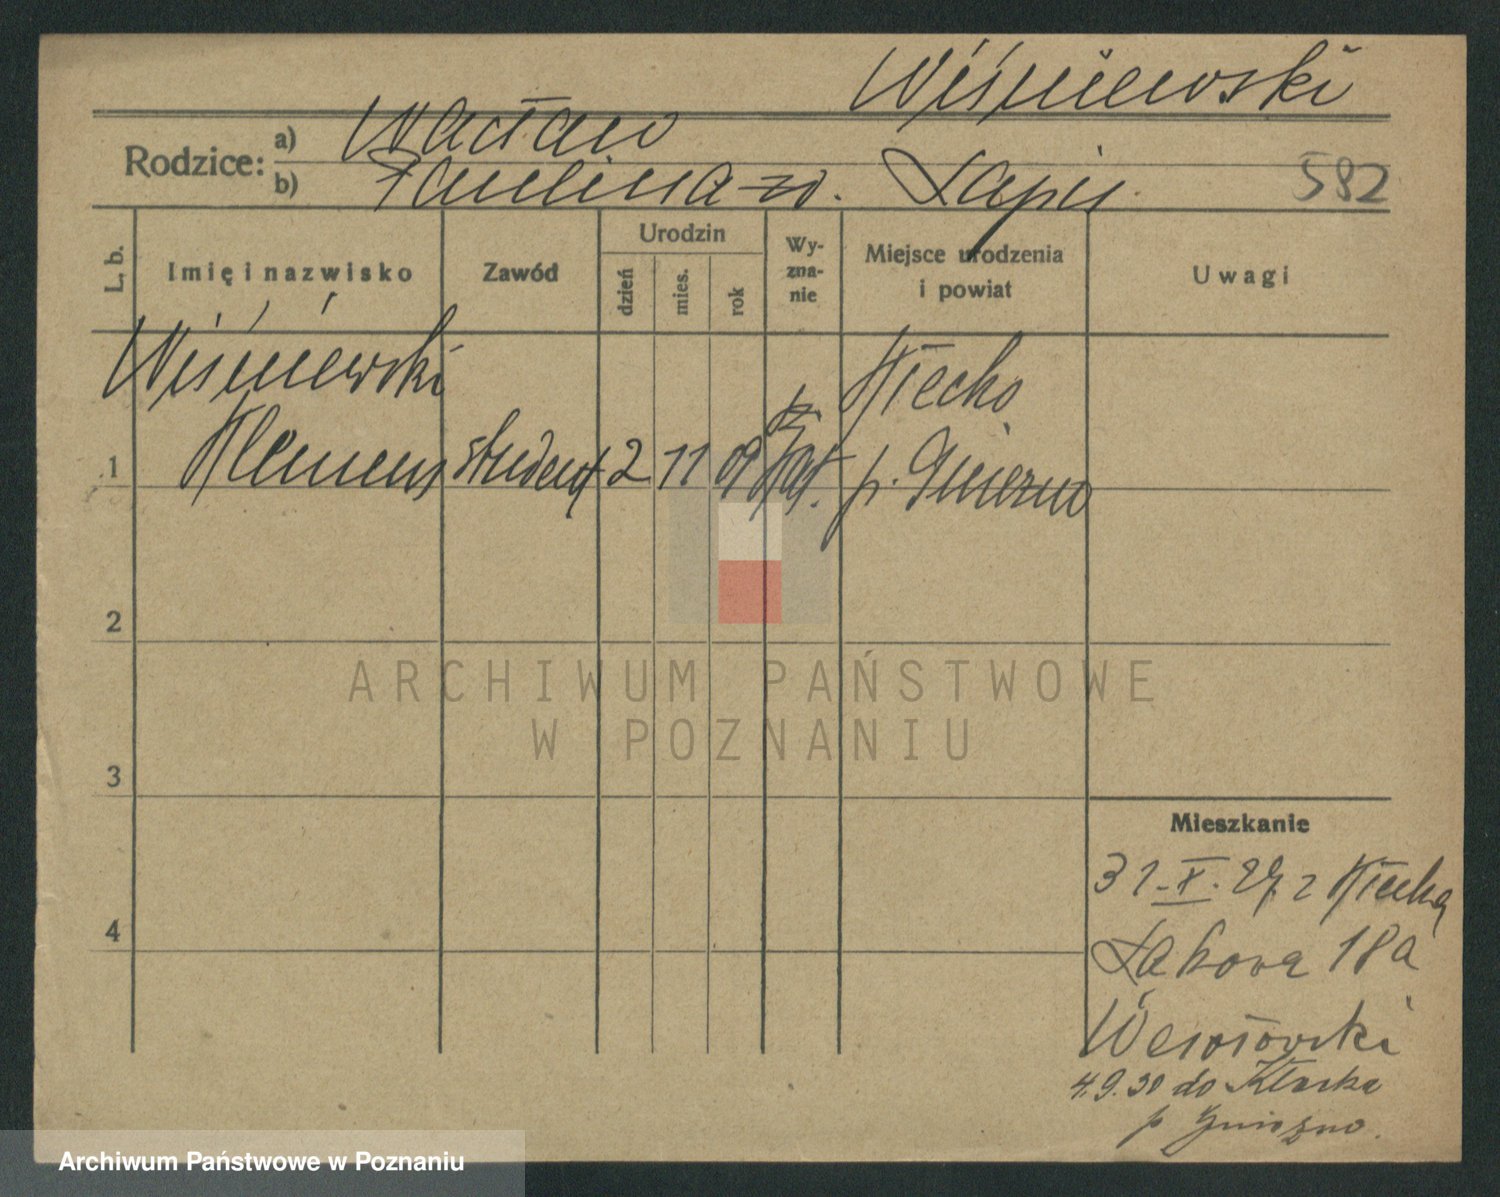 Wiśniewski
Rodzice: a) Wacław
b) Paulina zd. Łapis
582
L. b. Imię i nazwisko Zawód Urodzin dzień mies. rok Wy-zna-nie Miejsce urodzenia i powiat Uwagi
Wiśniewski Kłecko
1 Klemens student 2 11 09 kat. p. Gniezno
2
ARCHIWUM PAŃSTWOWE
W POZNANIU
3
Mieszkanie
31-X. 29 z Kłecka
4 Łąkowa 18a
Wesołowski
4.9.30 do Kłecka
p Gniezno.
Archiwum Państwowe w Poznaniu